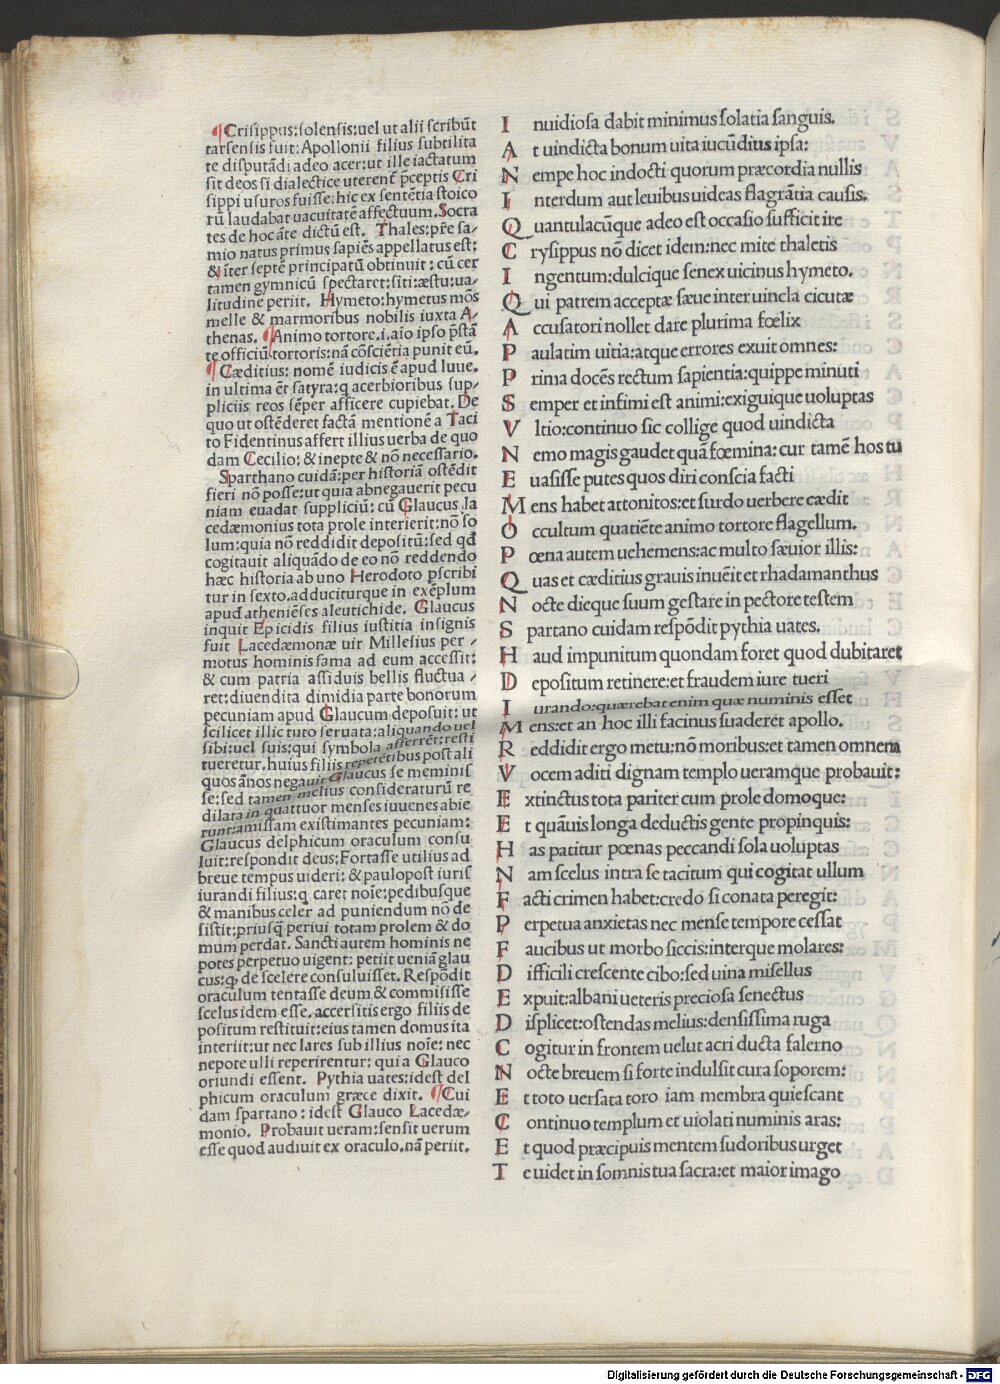 ¶Crisippus:solensis:uel ut alii scribūt
tarsensis fuit: Apollonii filius subtilita
te disputādi adeo acer:ut ille iactatum
sit deos si dialectice uterent̄ p̄ceptis Cri
sippi usuros fuisse:hic ex sentētia stoico
rū laudabat uacuitatē affectuum.Socra
tes de hoc āte dictū est. Thales:pr̄e sa-
mio natus primus sapiēs appellatus est:
& īter septē principatū obtinuit:cū cer
tamen gymnicū spectaret:siti:æstu:ua-
litudine periit. Hymeto:hymetus mōs
melle & marmoribus nobilis iuxta A-
thenas. ¶Animo tortore.i.aio ipso p̄stā
te officiū tortoris:nā cōsciētia punit eū.
¶Cæditius: nomē iudicis ē apud Iuue.
in ultima ēt satyra:q acerbioribus sup-
pliciis reos sēper afficere cupiebat. De
quo ut ostēderet factā mentionē a Taci
to Fidentinus affert illius uerba de quo
dam Cecilio: & inepte & nō necessario.
Sparthano cuidā:per historiā ostēdit
fieri nō posse:ut quia abnegauerit pecu
niam euadat suppliciū: cū Glaucus la
cedæmonius tota prole interierit:nō so
lum:quia nō reddidit depositū:sed qđ
cogitauit aliquādo de eo nō reddendo
hæc historia ab uno Herodoto pscribi
tur in sexto.adduciturque in exēplum
apud atheniēses a leutichide. Glaucus
inquit Epicidis filius iustitia insignis
fuit Lacedæmonæ uir Millesius per-
motus hominis fama ad eum accessit:
& cum patria assiduis bellis fluctua-
ret:diuendita dimidia parte bonorum
pecuniam apud Glaucum deposuit: ut
scilicet illic tuto seruata:aliquando uel
sibi:uel suis:qui symbola afferrēt:resti
tueretur.huius filiis repetētibus post ali
quos ānos negauit Glaucus se meminis
se:sed tamen melius consideraturū re
dilata in quattuor menses iuuenes abie
runt:amissam existimantes pecuniam:
Glaucus delphicum oraculum consu
luit:respondit deus:Fortasse utilius ad
breue tempus uideri: & paulopost iuris
iurandi filius:q caret noīe:pedibusque
& manibus celer ad puniendum nō de
sistit:priusq̄ periui totam prolem & do
mum perdat. Sancti autem hominis ne
potes perpetuo uigent: petiit ueniā glau
cus:qꝫ de scelere consuluisset. Respōdit
oraculum tentasse deum & commisisse
scelus idem esse. accersitis ergo filiis de
positum restituit:eius tamen domus ita
interiit:ut nec lares sub illius noīe: nec
nepote ulli reperirentur: qui a Glauco
oriundi essent. Pythia uates:idest del
phicum oraculum græce dixit. ¶Cui
dam spartano: idest Glauco Lacedæ-
monio. Probauit ueram:sensit uerum
esse quod audiuit ex oraculo.nā periit.
I nuidiosa dabit minimus solatia sanguis.
A t uindicta bonum uita iucūdius ipsa:
N empe hoc indocti quorum præcordia nullis
I nterdum aut leuibus uideas flagrātia causis.
Q uantulacūque adeo est occasio sufficit iræ
C rysippus nō dicet idem:nec mite thaletis
I ngentum:dulcique senex uicinus hymeto.
Q ui patrem acceptæ sæue inter uincla cicutæ
A ccusatori nollet dare plurima fœlix
P aulatim uitia:atque errores exuit omnes:
P rima docēs rectum sapientia:quippe minuti
S emper et infimi est animi:exiguique uoluptas
V ltio:continuo sic collige quod uindicta
N emo magis gaudet quā fœmina: cur tamē hos tu
E uasisse putes quos diri conscia facti
M ens habet attonitos:et surdo uerbere cædit
O ccultum quatiēte animo tortore flagellum.
P œna autem uehemens:ac multo sæuior illis:
Q uas et cæditius grauis inuēit et rhadamanthus
N octe dieque suum gestare in pectore testem
S partano cuidam respōdit pythia uates.
H aud impunitum quondam foret quod dubitaret
D epositum retinere:et fraudem iure tueri
I urando:quærebat enim quæ numinis esset
M ens:et an hoc illi facinus suaderet apollo.
R eddidit ergo metu:nō moribus:et tamen omnem
V ocem aditi dignam templo ueramque probauit:
E xtinctus tota pariter cum prole domoque:
E t quāuis longa deductis gente propinquis:
H as patitur pœnas peccandi sola uoluptas
N am scelus intra se tacitum qui cogitat ullum
F acti crimen habet:credo si conata peregit:
P erpetua anxietas nec mensę tempore cessat
F aucibus ut morbo siccis:interque molares:
D ifficili crescente cibo:sed uina misellus
E xpuit:albani ueteris preciosa senectus
D isplicet:ostendas melius:densissima ruga
C ogitur in frontem uelut acri ducta falerno
N octe breuem si forte indulsit cura soporem:
E t toto uersata toro iam membra quiescant
C ontinuo templum et uiolati numinis aras:
E t quod præcipuis mentem sudoribus urget
T e uidet in somnis tua sacra:et maior imago
Digitalisierung gefördert durch die Deutsche Forschungsgemeinschaft - DFG